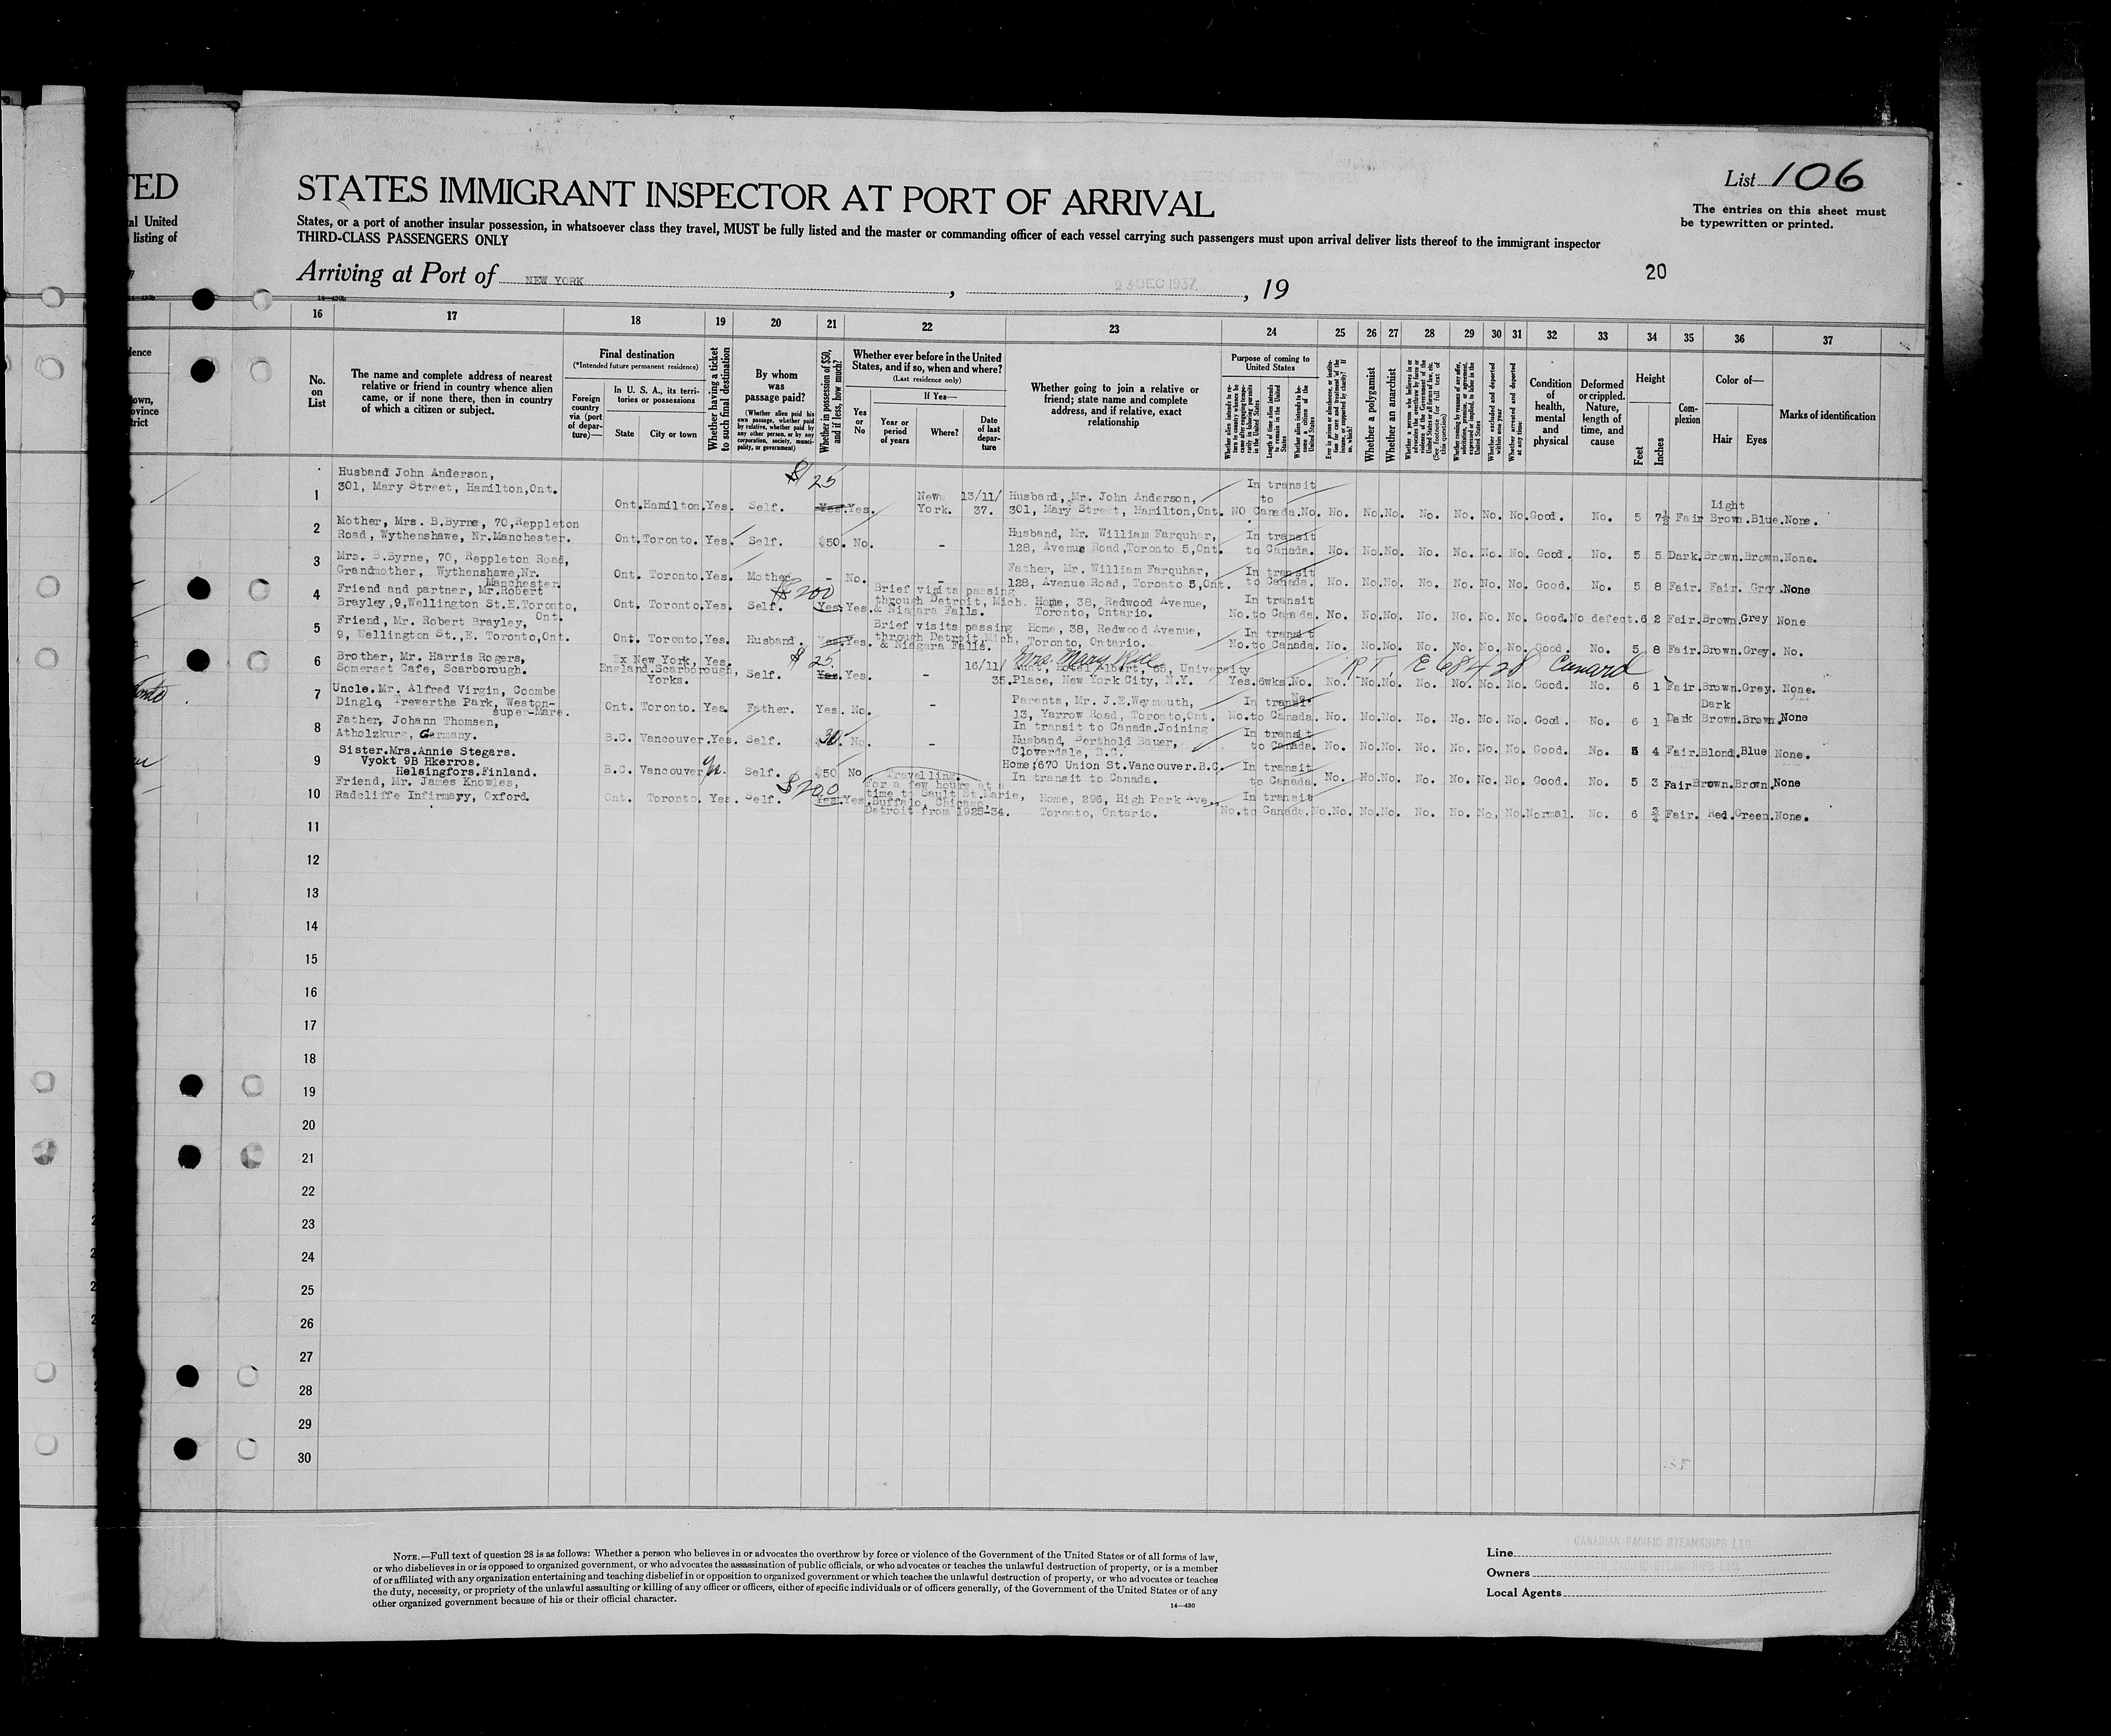 TED
al United
listing of
STATES IMMIGRANT INSPECTOR AT PORT OF ARRIVAL
List 106
The entries on this sheet must
be typewritten or printed.
States, or a port of another insular possession, in whatsoever class they travel, MUST be fully listed and the master or commanding officer of each vessel carrying such passengers must upon arrival deliver lists thereof to the immigrant inspector
THIRD-CLASS PASSENGERS ONLY
Arriving at Port of NEW YORK, DEC 1937, 19
20
16 17 18 19 20 21 22 23 24 25 26 27 28 29 30 31 32 33 34 35 36 37
No. on List
The name and complete address of nearest relative or friend in country whence alien came, or if none there, then in country of which a citizen or subject.
Final destination
(*Intended future permanent residence)
Foreign country via (port of departure)—
In U. S. A., its territories or possessions
State
City or town
Whether having a ticket to such final destination
By whom was passage paid?
(Whether alien paid his own passage, whether paid by relative, whether paid by any other person, or by any corporation, society, municipality, or government)
Whether in possession of $50, and if less, how much?
Whether ever before in the United States, and if so, when and where?
(Last residence only)
Yes or No
If Yes—
Year or period of years
Where?
Date of last departure
Whether going to join a relative or friend; state name and complete address, and if relative, exact relationship
Purpose of coming to United States
Length of time alien intends to remain in the United States
Whether alien intends to become a citizen of the United States
Whether a polygamist
Whether an anarchist
Whether excluded and deported within one year
Whether arrested and deported at any time
Condition of health, mental and physical
Deformed or crippled. Nature, length of time, and cause
Height
Feet
Inches
Complexion
Color of—
Hair
Eyes
Marks of identification
1 Husband John Anderson,
301, Mary Street, Hamilton,Ont. Ont. Hamilton. Yes. Self. $25 Yes. Yes. New York. 13/11/37. Husband, Mr. John Anderson, 301, Mary Street, Hamilton,Ont. In transit to NO Canada. No. No. No. No. No. No. No. No. Good. No. 5 7½ Fair Light Brown. Blue. None.
2 Mother, Mrs. B.Byrne, 70,Reppleton
Road, Wythenshawe, Nr.Manchester. Ont. Toronto. Yes. Self. $50. No. - Husband, Mr. William Farquhar, 128, Avenue Road,Toronto 5,Ont. In transit to Canada. No. No. No. No. No. No. No. Good. No. 5 5 Dark. Brown. Brown. None.
3 Mrs. B.Byrne, 70, Reppleton Road,
Grandmother, Wythenshawe,Nr.
Manchester. Ont. Toronto. Yes. Mother - No. - Father, Mr. William Farquhar, 128, Avenue Road, Toronto 5,Ont. In transit to Canada. No. No. No. No. No. No. No. Good. No. 5 8 Fair. Fair. Grey. None
4 Friend and partner, Mr.Robert
Brayley,9,Wellington St.E.Toronto,
Ont. Ont. Toronto. Yes. Self. $200 Yes. Yes. Brief visits passing through Detroit, Mich. & Niagara Falls. Home, 38, Redwood Avenue, Toronto, Ontario. In transit No. to Canada. No. No. No. No. No. No. No. Good. No defect. 6 2 Fair. Brown. Grey None
5 Friend, Mr. Robert Brayley,
9, Wellington St.,E. Toronto,Ont. Ont. Toronto. Yes. Husband. Yes. Yes. Brief visits passing through Detroit,Mich, & Niagara Falls. Home, 38, Redwood Avenue, Toronto, Ontario. In transit No. to Canada. No. No. No. No. No. No. No. Good. No. 5 8 Fair. Brown. Grey. No.
6 Brother, Mr. Harris Rogers,
Somerset Cafe, Scarborough. Ex New York, England.Scarborough, Yorks. Yes. Self. $25. Yes. Yes. - 16/11/35. Mrs. Mary Rice Aunt, Hotel Albert, 65, University Place, New York City, N.Y. Yes. 6wks. No. No. No. No. No. No. No. No. Good. No. 6 1 Fair. Brown. Grey. None.
R.T. E 68428 Cunard
7 Uncle.Mr. Alfred Virgin, Coombe
Dingle, Trewartha Park, Weston-
super-Mare. Ont. Toronto. Yes. Father. Yes. No. - Parents, Mr. J.E.Weymouth, 13, Yarrow Road, Toronto,Ont. In transit No. to Canada. No. No. No. No. No. No. No. Good. No. 6 1 Dark Dark Brown. Brown. None
8 Father, Johann Thomsen,
Atholzburg, Germany. B.C. Vancouver. Yes. Self. 30. No. - In transit to Canada.Joining Husband, Berthold Bauer, Cloverdale, B.C. In transit to Canada. No. No. No. No. No. No. No. Good. No. 5 4 Fair. Blond. Blue None.
9 Sister.Mrs.Annie Stegars.
Vyokt 9B Hkerros.
Helsingfors.Finland. B.C. Vancouver Yes. Self. $50 No Home;670 Union St.Vancouver.B.C. In transit to Canada. In transit to Canada. No. No. No. No. No. No. No. Good. No. 5 3 Fair Brown. Brown. None
10 Friend, Mr. James Knowles,
Radcliffe Infirmary, Oxford. Ont. Toronto. Yes. Self. $200 Yes. Yes. Travelling. For a few hours at a time to Sault St.Marie, Buffalo, Chicago, Detroit from 1925-34. Home, 296, High Park Ave., Toronto, Ontario. In transit No. to Canada. No. No. No. No. No. No. No. No. Normal. No. 6 ¾ Fair. Red. Green. None.
11
12
13
14
15
16
17
18
19
20
21
22
23
24
25
26
27
28
29
30
NOTE.—Full text of question 28 is as follows: Whether a person who believes in or advocates the overthrow by force or violence of the Government of the United States or of all forms of law,
or who disbelieves in or is opposed to organized government, or who advocates the assassination of public officials, or who advocates or teaches the unlawful destruction of property, or is a member
of or affiliated with any organization entertaining and teaching disbelief in or opposition to organized government or which teaches the unlawful destruction of property, or who advocates or teaches
the duty, necessity, or propriety of the unlawful assaulting or killing of any officer or officers, either of specific individuals or of officers generally, of the Government of the United States or of any
other organized government because of his or their official character.
14—430
Line CANADIAN PACIFIC STEAMSHIPS LTD.
Owners CANADIAN PACIFIC STEAMSHIPS LTD.
Local Agents